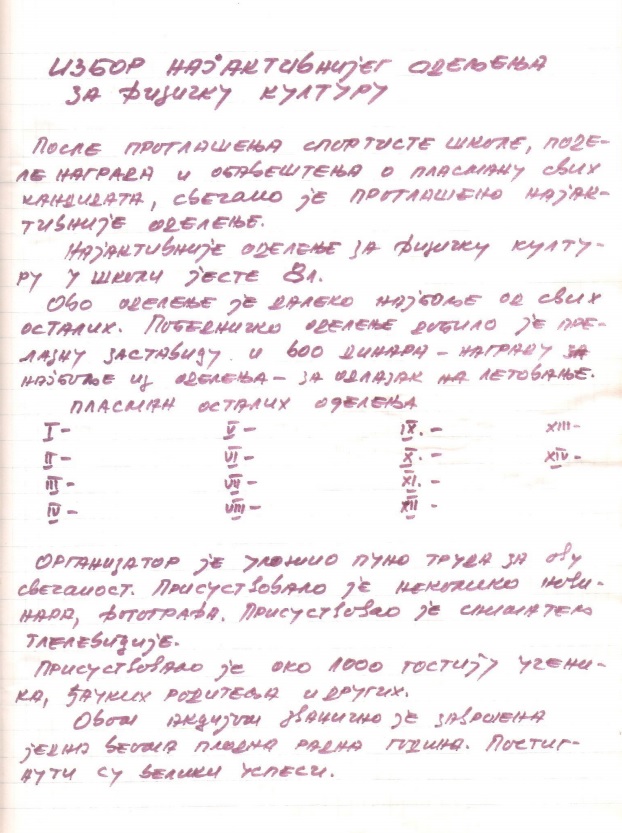 ИЗБОР НАЈАКТИВНИЈЕГ ОДЕЉЕЊА
ЗА ФИЗИЧКУ КУЛТУРУ
ПОСЛЕ ПРОГЛАШЕЊА СПОРТИСТЕ ШКОЛЕ, ПОДЕ-
ЛЕ НАГРАДА И ОБАВЕШТЕЊА О ПЛАСМАНУ СВИХ
КАНДИДАТА, СВЕЧАНО ЈЕ ПРОГЛАШЕНО НАЈАК-
ТИВНИЈЕ ОДЕЛЕЊЕ.
НАЈАКТИВНИЈЕ ОДЕЛЕЊЕ ЗА ФИЗИЧКУ КУЛТУ-
РУ У ШКОЛИ ЈЕСТЕ 8Л.
ОВО ОДЕЛЕЊЕ ЈЕ ДАЛЕКО НАЈБОЉЕ ОД СВИХ
ОСТАЛИХ. ПОБЕДНИЧКО ОДЕЛЕЊЕ ДОБИЛО ЈЕ ПРЕ-
ЛАЗНУ ЗАСТАВИЦУ И 600 ДИНАРА - НАГРАДУ ЗА
НАЈБОЉЕ ИЗ ОДЕЛЕЊА - ЗА ОДЛАЗАК НА ЛЕТОВАЊЕ.
ПЛАСМАН ОСТАЛИХ ОДЕЛЕЊА
I - V - IX. - XIII -
II - VI - X. - XIV -
III - VII - XI. -
IV - VIII - XII -
ОРГАНИЗАТОР ЈЕ УЛОЖИО ПУНО ТРУДА ЗА ОВУ
СВЕЧАНОСТ. ПРИСУСТВОВАЛО ЈЕ НЕКОЛИКО НОВИ-
НАРА, ФОТОГРАФА. ПРИСУСТВОВАО ЈЕ СНИМАТЕЉ
ТЛЕЛЕВИЗИЈЕ.
ПРИСУСТВОВАЛО ЈЕ ОКО 1000 ГОСТИЈУ УЧЕНИ-
КА, ЂАЧКИХ РОДИТЕЉА И ДРУГИХ.
ОВОМ АКЦИЈОМ ЗВАНИЧНО ЈЕ ЗАВРШЕНА
ЈЕДНА ВЕОМА ПЛОДНА РАДНА ГОДИНА. ПОСТИГ-
НУТИ СУ ВЕЛИКИ УСПЕСИ.